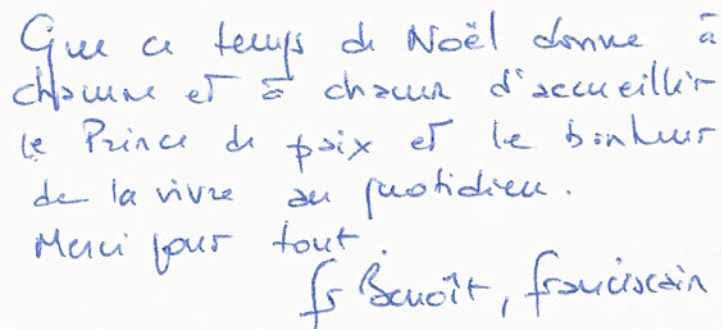 Que ce temps de Noël donne à
chacune et à chacun d'accueillir
le Prince de paix et le bonheur
de la vivre au quotidien.
Merci pour tout.
fr Benoît, franciscain